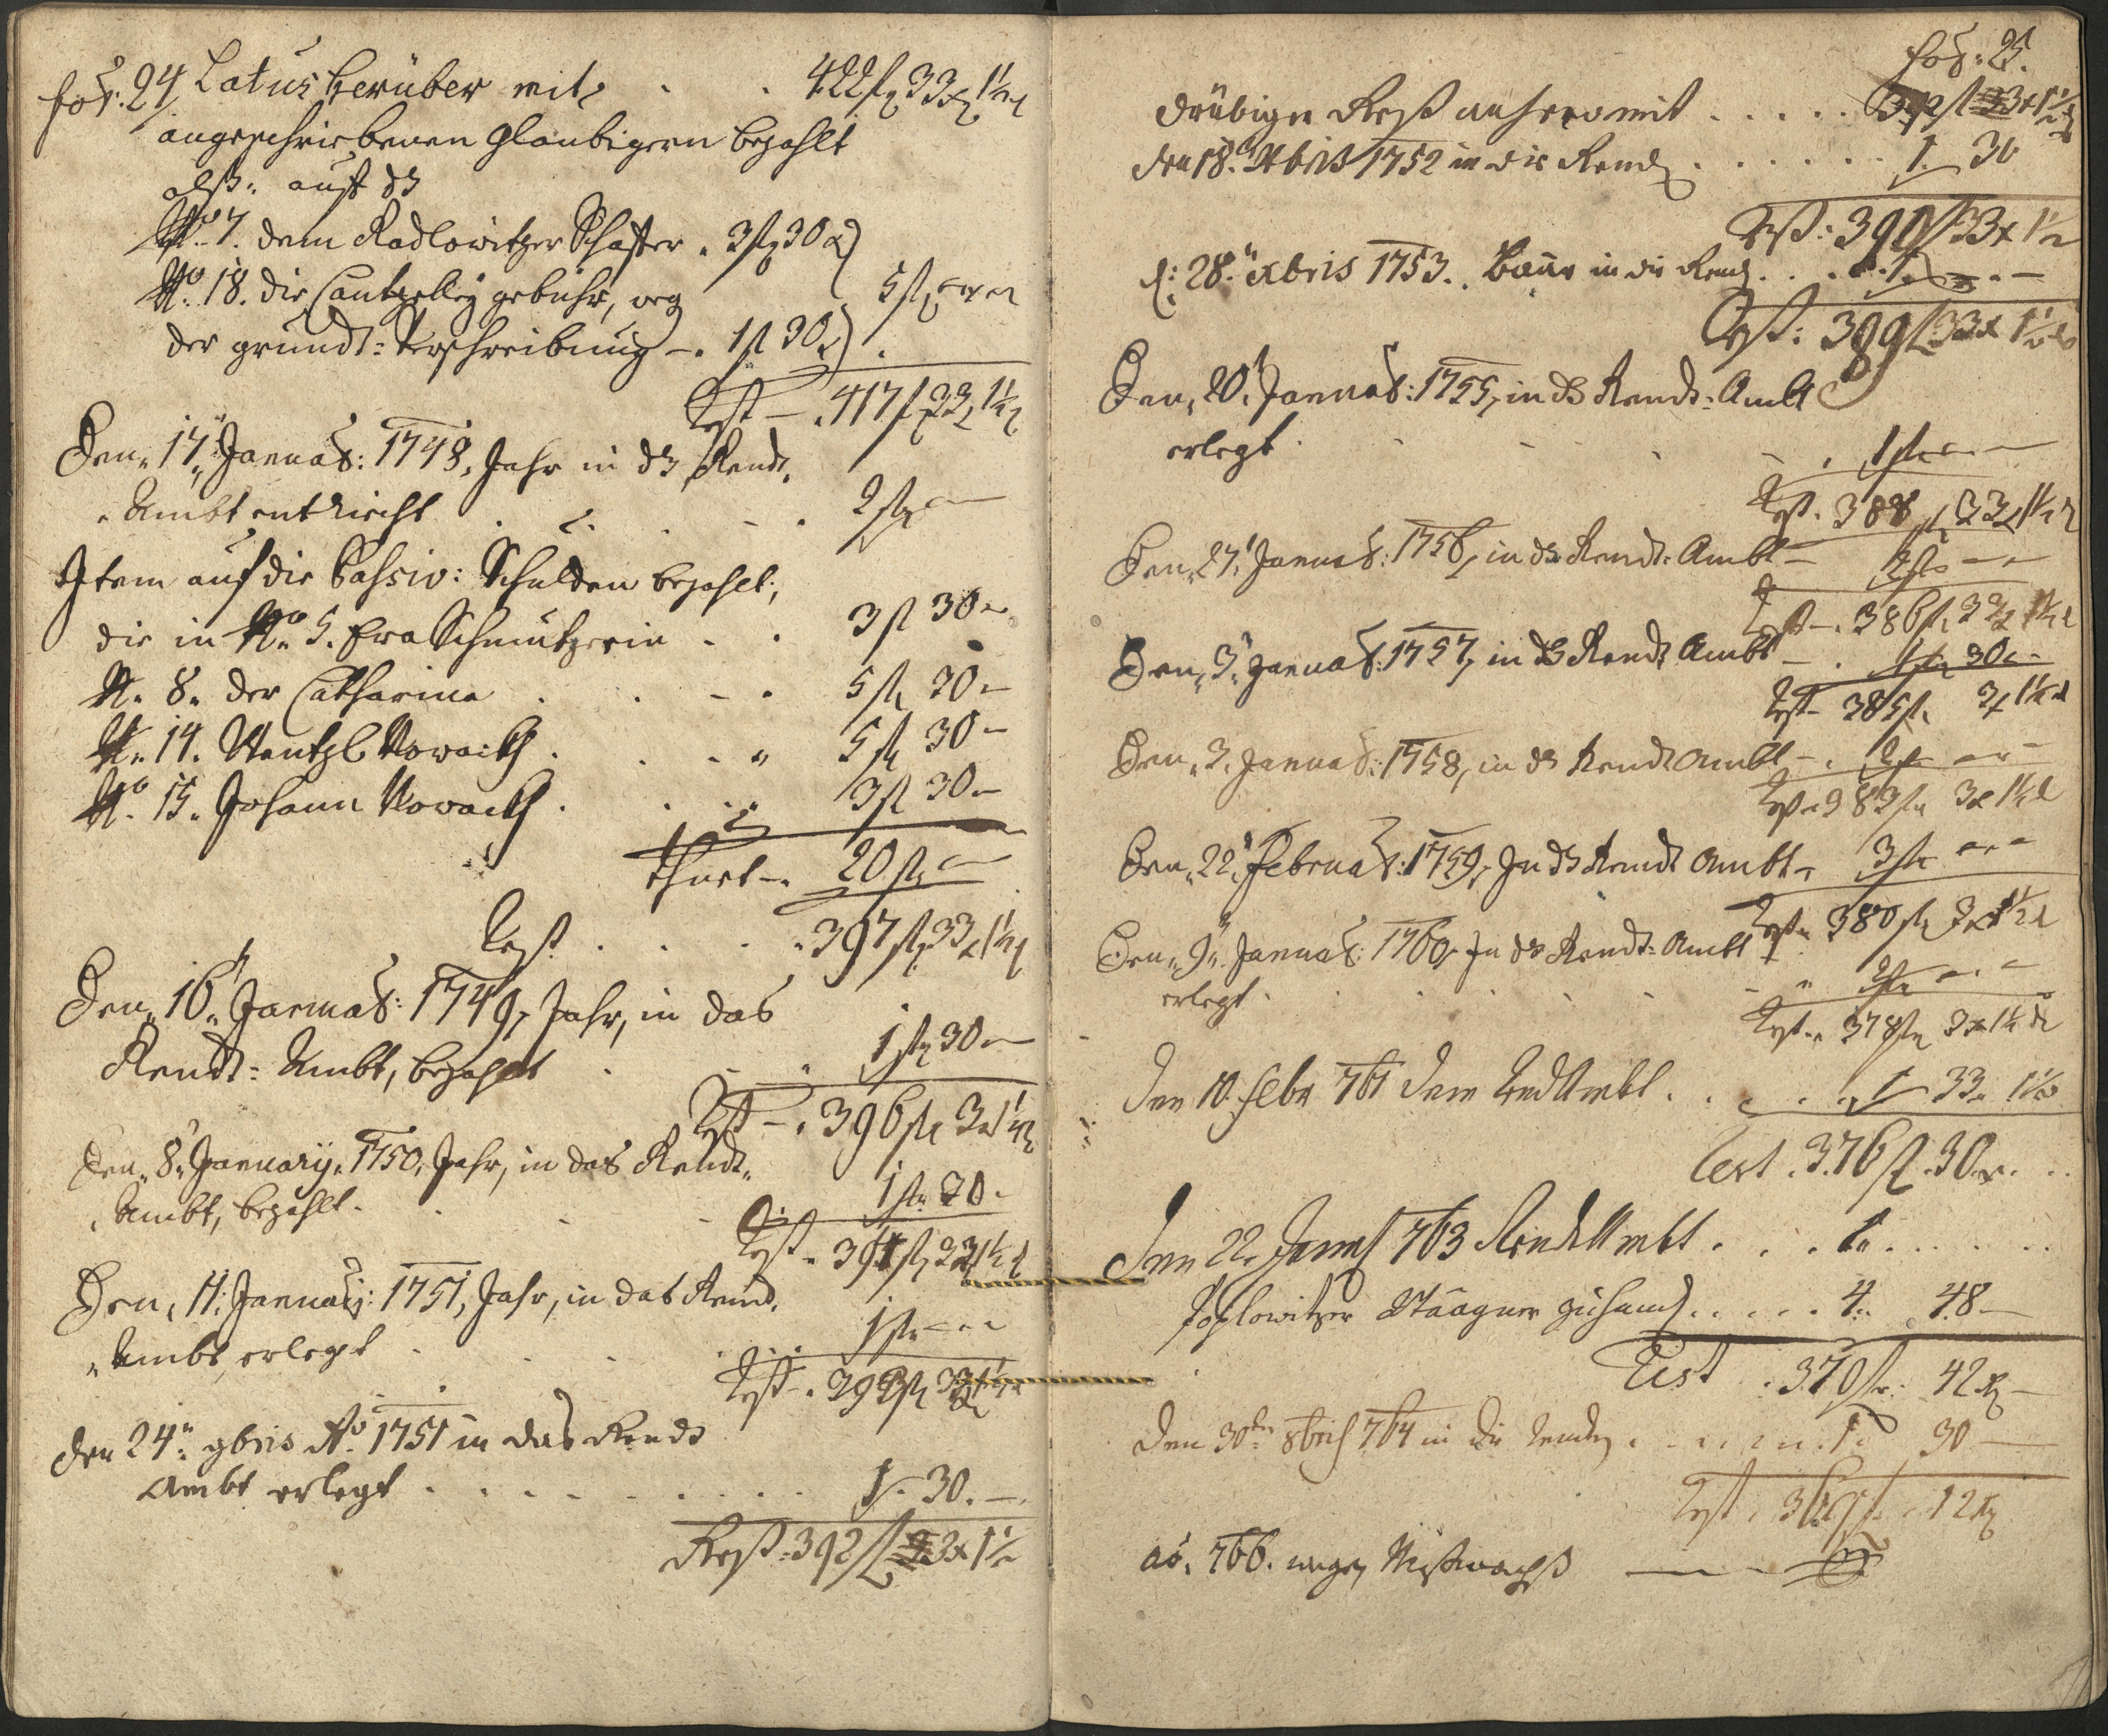 fol: 24 Latus herüber mit . . 422 fl 33 x 1½ d
angeschriebenen Glaubigern bezahlt
alß: auf das
No. 7. dem Radlowitzer Schaffer . 3 fl 30 x
No. 18. die Cantzelley gebühr, weg
5 fl
der grundt: Verschreibung - . 1 fl 30 x
Rest - . 417 fl 33 x 1½ d
Den 17 Januar: 1748, Jahr in das Rendt
Ambt entricht . . . 2 fl
Item auf die Passiv: Schulden bezahlt;
die in No. 5. Eva Schmutzerin . . 3 fl 30
N. 8. der Catharina . . . 5 fl 30
N. 14. Wentzl Nowackh . . . 5 fl 30
No. 15. Johann Nowackh . . . 3 fl 30
thuet - . 20 fl
Rest . . . 397 fl 33 x 1½ d
Den 16 Januar: 1749, Jahr, in das
Rendt: Ambt, bezahlt . . . 1 fl 30
Rest - . 396 fl 3 x 1½ d
Den 8 January 1750, Jahr, in das Rendt
Ambt, bezahlt . . . 1 fl 30
Rest . 394 fl 33 x 1½ d
Den 11: January: 1751, Jahr, in das Rend
Ambt, erlegt . . . 1 fl
Rest - . 393 fl 33 x 1½ d
den 24 9bris Ao. 1751 in das Rendt
Ambt erlegt . . . 1 . 30 . -
Rest: 392 fl 3 x 1½
fol: 25.
drübiger Rest anhero mit . . . 392 fl 3 x 1½ d
den 18. Xbris 1752 in die Rend . . . 1 . 30
Rest: 390 fl 33 x 1½
d: 28. Xbris 1753. Baar in die Rend . . . 1 . -
Rest: 389 fl 33 x 1½ d
Den 20 Januar: 1755, in das Rendt: Ambt
erlegt . . . 1 fl
Rest . 388 fl 33 x 1½ d
Den 27 Januar: 1756, in das Rendt: Ambt - 2 fl
Rest - . 386 fl 33 x 1½ d
Den 3 Januar: 1757, in das Rendt Ambt - . 1 fl 30
Rest - 385 fl 3 x 1½ d
Den 3. Januar: 1758, in das Rendt Ambt - . 2 fl
Rest . 383 fl 3 x 1½ d
Den 22 Februar: 1759, In das Rendt Ambt - 3 fl
Rest 380 fl 3 x 1½ d
Den 9 Januar: 1760, In das Rendt: Ambt
erlegt . . . 2 fl
Rest . 378 fl 3 x 1½ d
Den 10. Febr 761 dem Rendt Ambt . . . 1 33 1½
Rest . 376 fl . 30 x . .
Den 22. Januar 763 Rendt Ambt . . . 1 . . .
4 48 -
Rest . 370 fl . 42 x -
Den 30ten 8bris 764 in die Renten . . . 1 . 30 -
Rest . 369 fl . 12 x
ao. 766. wegen Mißwachß -